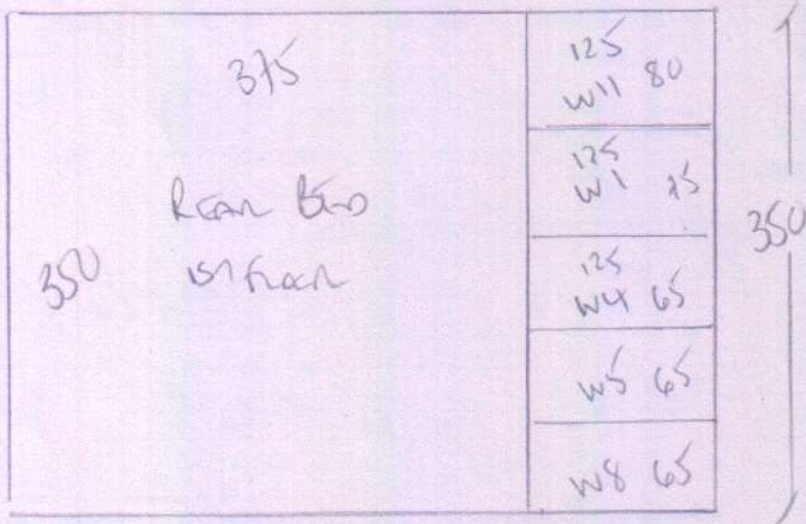 375
REAR BED
1ST FLOOR
350
125
W11 80
125
W1 75
125
W4 65
W5 65
W8 65
350